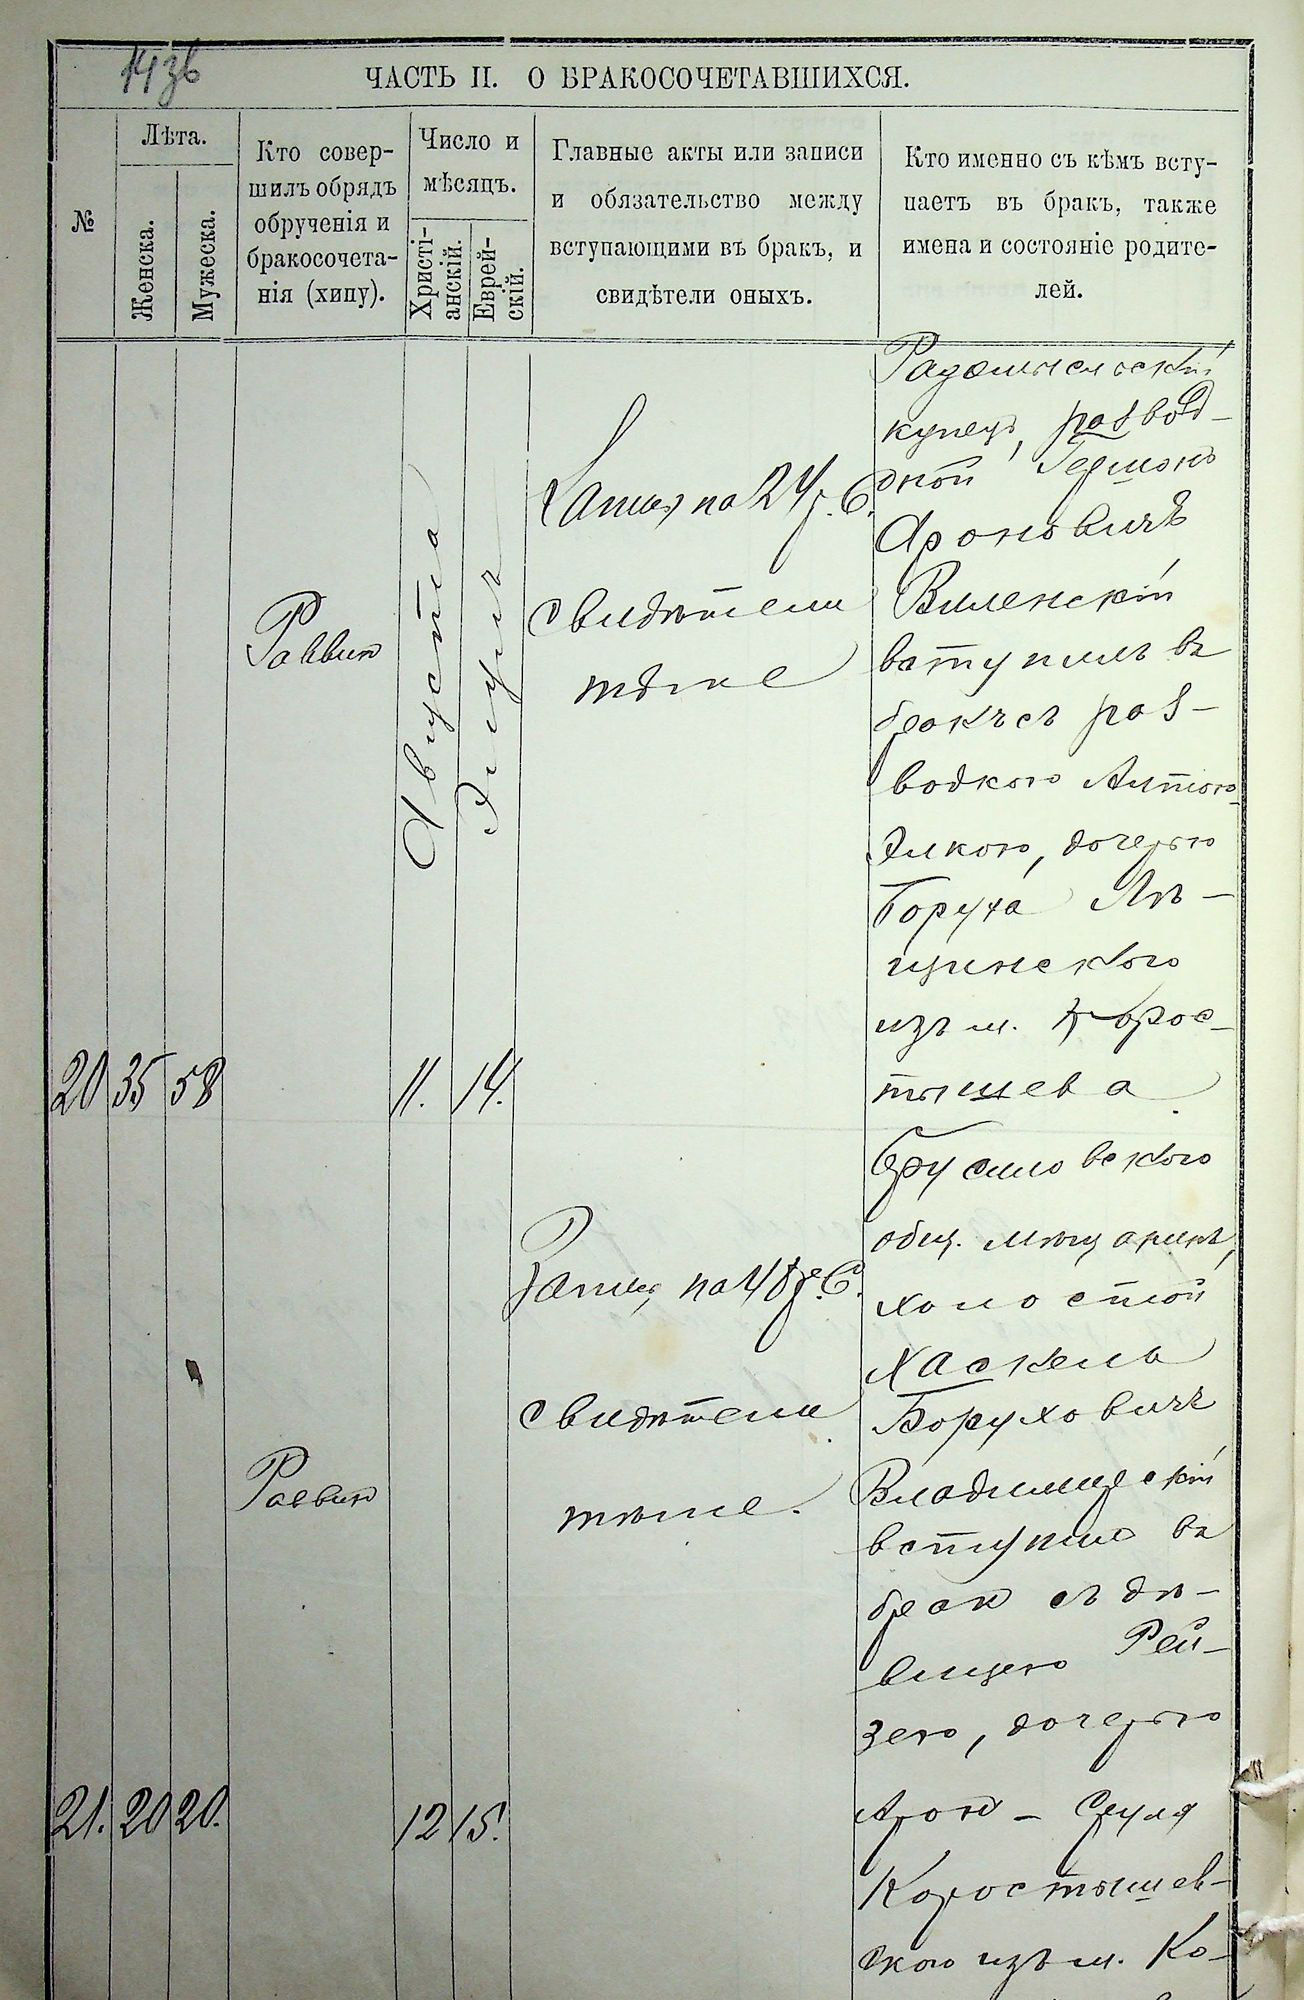 ЧАСТЬ II. О БРАКОСОЧЕТАВШИХСЯ.
№
Лѣта.
Женска.
Мужеска.
Кто совер-
шилъ обрядъ
обрученія и
бракосочета-
нія (хипу).
Число и
мѣсяцъ.
Христі-
анскій.
Еврей-
скій.
Главные акты или записи
и обязательство между
вступающими въ бракъ, и
свидѣтели оныхъ.
Кто именно съ кѣмъ всту-
паетъ въ бракъ, также
имена и состояніе родите-
лей.
20
35
58
Раввин
Августа
11.
Элуль
14.
Запись на 24 р. С.
свидѣтели
тѣже
Радомысльскій
купецъ, развод-
дной Германъ
Ароновичъ
Виленскій
вступилъ въ
бракъ съ раз-
водкою Алтою-
Элкою, дочерью
Боруха Лѣ-
щинского
изъ м. Корос-
тышева
21.
20
20.
Раввин
12
15.
Запись на 48 р. С.
свидѣтели
тѣже.
Брусиловского
общ. мѣщанинъ,
холостой
Хаскель
Боруховичъ
Владимирскій
вступил въ
брак съ дѣ-
вицею Рей-
зею, дочерью
Арон - Сруля
Коростышев-
ского изъ м. Ко-